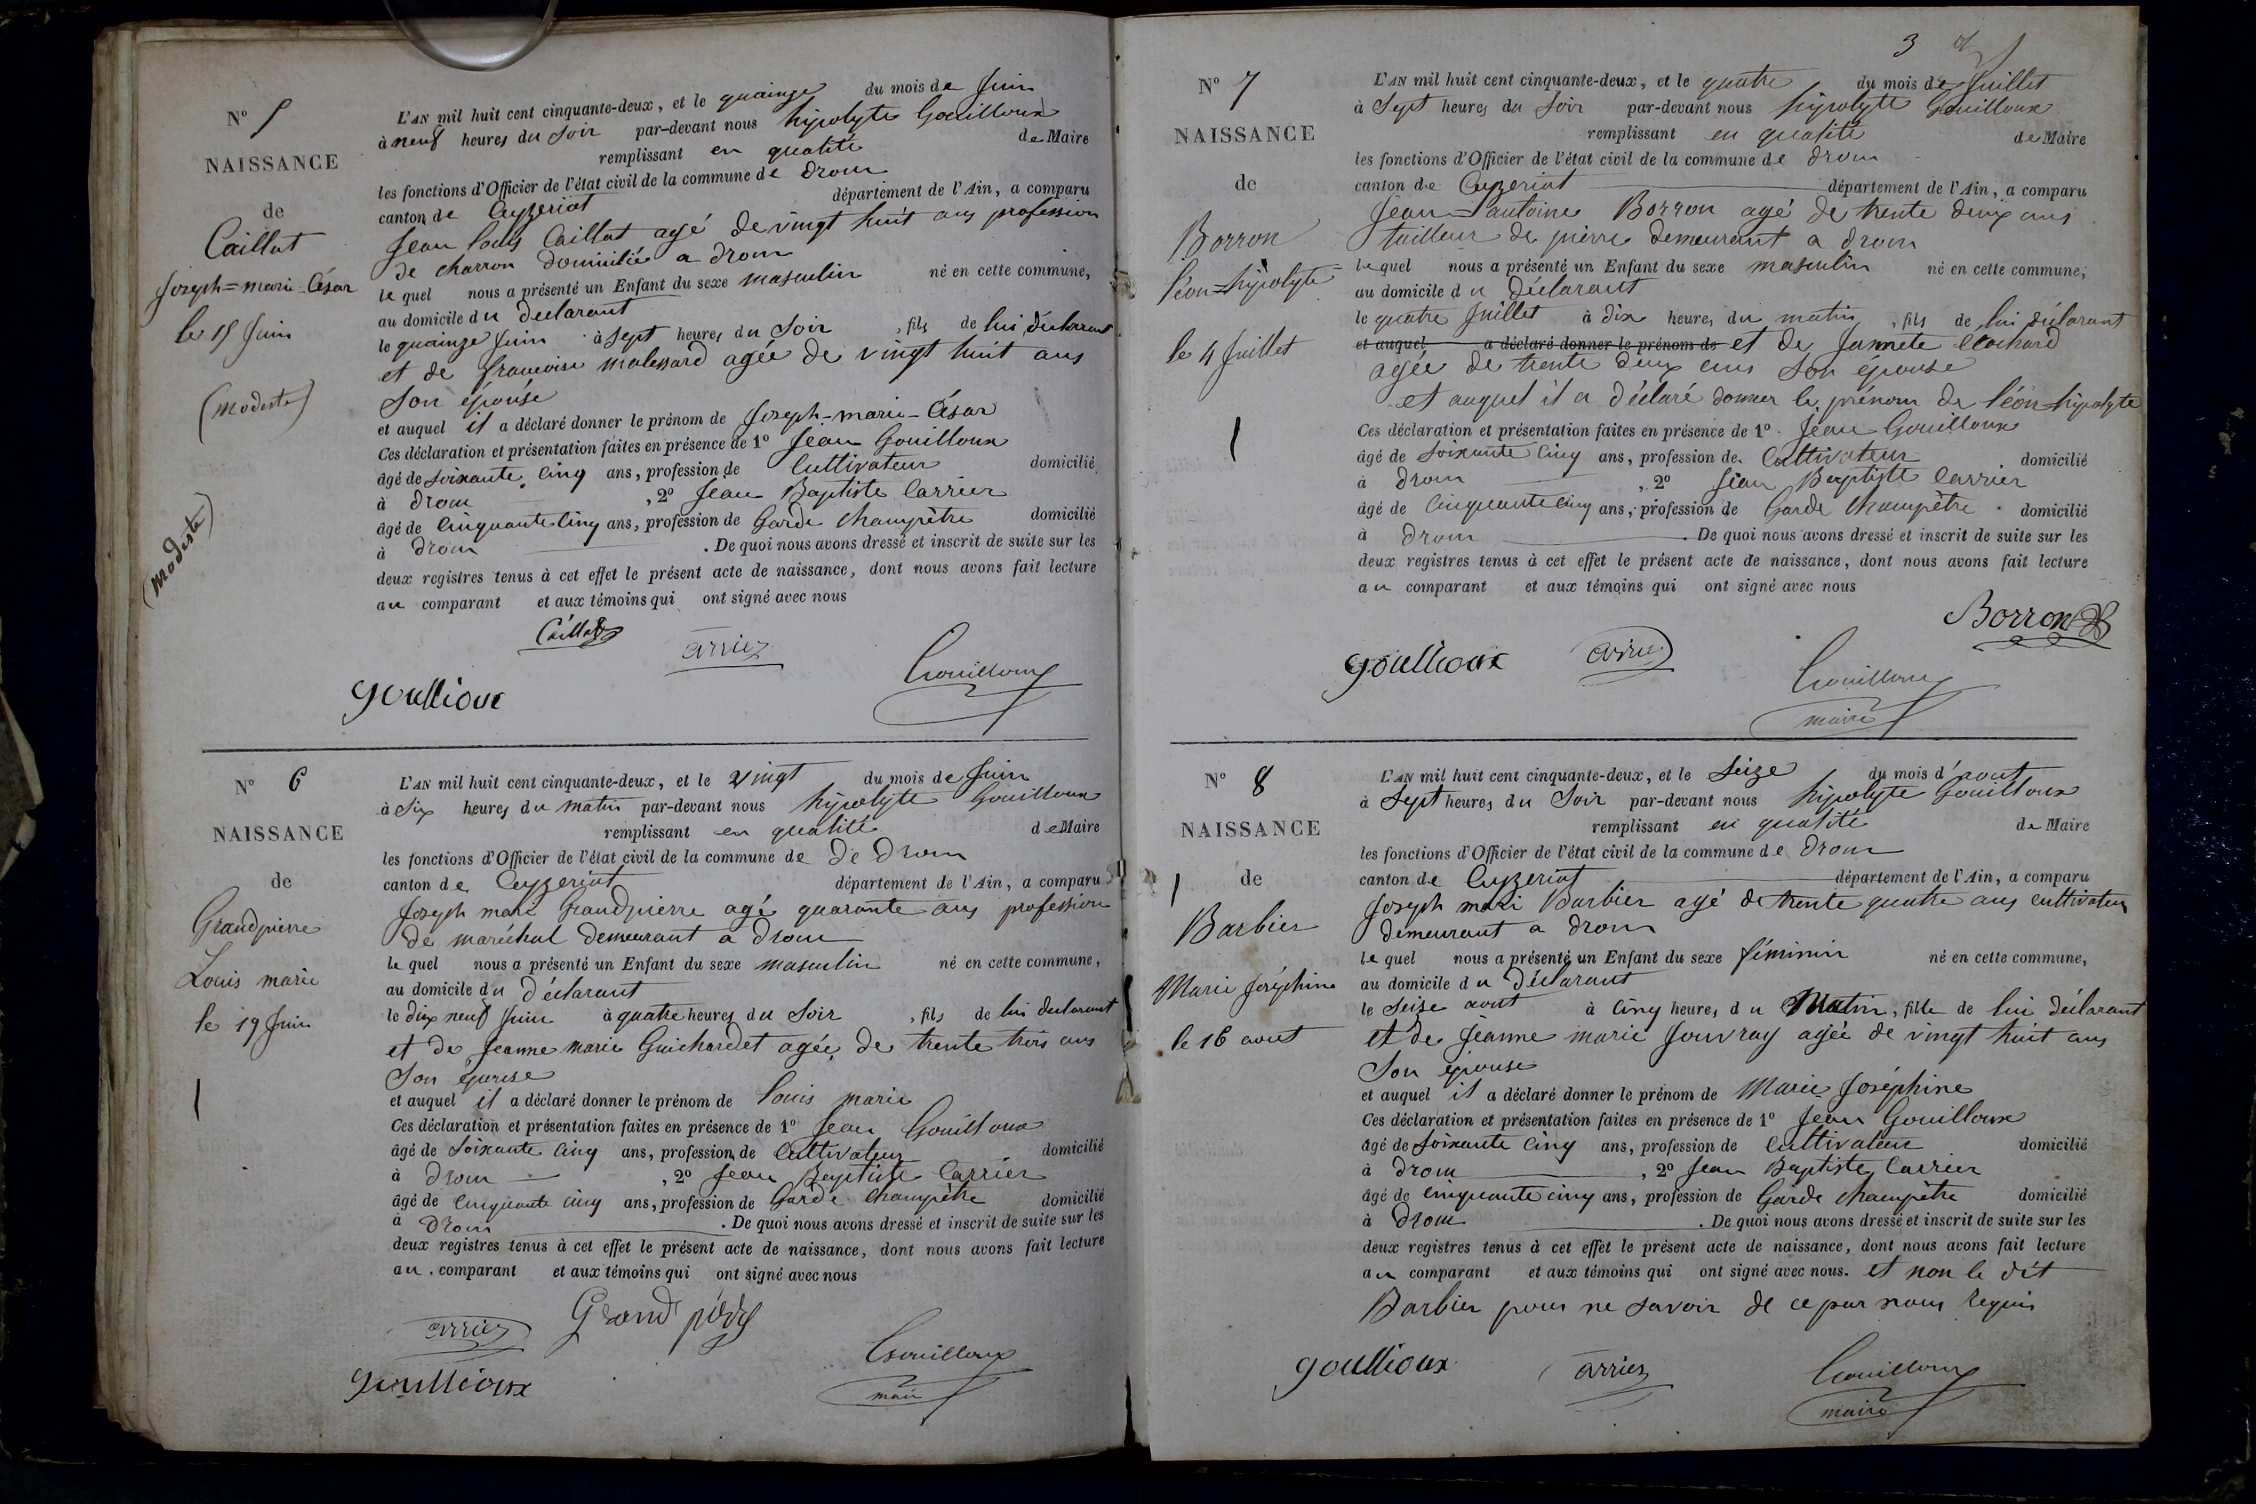 N° 5
NAISSANCE
de
Caillat
Joseph=marie-César
le 15 Juin
(Modeste)
(Modeste)
L'AN mil huit cent cinquante-deux, et le quainze du mois de Juin
à neuf heures du Soir par-devant nous hipolyte Gouilloux
remplissant en qualité de Maire
les fonctions d'Officier de l'état civil de la commune de drom
canton de Ceyzeriat département de l'Ain, a comparu
Jean louis Caillat agé de vingt huit ans profession
de charron domicilié a drom
le quel nous a présenté un Enfant du sexe masculin né en cette commune,
au domicile du déclarant
le quainze Juin à sept heures du Soir, fils de lui déclarant
et de francoise malessard agée de vingt huit ans
Son épouse
et auquel il a déclaré donner le prénom de Joseph-marie-César
Ces déclaration et présentation faites en présence de 1° Jean Gouilloux
âgé de Soixante Cinq ans, profession de Cultivateur domicilié
à drom, 2° Jean Baptiste Carrier
âgé de Cinquante Cinq ans, profession de Garde Champètre domicilié
à drom. De quoi nous avons dressé et inscrit de suite sur les
deux registres tenus à cet effet le présent acte de naissance, dont nous avons fait lecture
au comparant et aux témoins qui ont signé avec nous
Caillat
Carrier
Gouilloux
goullioux
N° 6
NAISSANCE
de
Grandpierre
Louis marie
le 19 Juin
L'AN mil huit cent cinquante-deux, et le vingt du mois de Juin
à Six heures du matin par-devant nous hipolyte Gouilloux
remplissant en qualité de Maire
les fonctions d'Officier de l'état civil de la commune de de Drom
canton de Ceyzeriat département de l'Ain, a comparu
Joseph marie Grandpierre agé quarante ans profession
de maréchal demeurant a drom
le quel nous a présenté un Enfant du sexe masculin né en cette commune,
au domicile du déclarant
le dix neuf Juin à quatre heures du Soir, fils de lui declarant
et de Jeanne marie Guichardet agée de trente trois ans
Son épouse
et auquel il a déclaré donner le prénom de louis marie
Ces déclaration et présentation faites en présence de 1° Jean Gouilloux
âgé de Soixante Cinq ans, profession de Cultivateur domicilié
à drom, 2° Jean Baptiste Carrier
âgé de Cinquante cinq ans, profession de Garde Champètre domicilié
à drom. De quoi nous avons dressé et inscrit de suite sur les
deux registres tenus à cet effet le présent acte de naissance, dont nous avons fait lecture
au comparant et aux témoins qui ont signé avec nous
Carrier
Grand pierre
Gouilloux
maire
goullioux
3
N° 7
NAISSANCE
de
Borron
léon=hipolyte
le 4 Juillet
L'AN mil huit cent cinquante-deux, et le quatre du mois de Juillet
à Sept heures du Soir par-devant nous hipolyte Gouilloux
remplissant en qualité de Maire
les fonctions d'Officier de l'état civil de la commune de drom
canton de Ceyzeriat département de l'Ain, a comparu
Jean=antoine Borron agé de trente deux ans
tailleur de pierre demeurant a drom
le quel nous a présenté un Enfant du sexe masculin né en cette commune,
au domicile du déclarant
le quatre Juillet à dix heures du matin, fils de lui déclarant
et auquel a déclaré donner le prénom de et de Jannete Cochard
agée de trente deux ans Son épouse
et auquel il a déclaré donner le prénom de léon=hipolyte
Ces déclaration et présentation faites en présence de 1° Jean Gouilloux
âgé de Soixante Cinq ans, profession de Cultivateur domicilié
à drom, 2° Jean Baptiste Carrier
âgé de Cinquante cinq ans, profession de Garde Champètre domicilié
à drom. De quoi nous avons dressé et inscrit de suite sur les
deux registres tenus à cet effet le présent acte de naissance, dont nous avons fait lecture
au comparant et aux témoins qui ont signé avec nous
Borron
goullioux
Carrier
Gouilloux
maire
N° 8
NAISSANCE
de
Barbier
Marie Joséphine
le 16 aout
L'AN mil huit cent cinquante-deux, et le Seize du mois d'aout
à Sept heures du Soir par-devant nous hipolyte Gouilloux
remplissant en qualité de Maire
les fonctions d'Officier de l'état civil de la commune de drom
canton de Ceyzeriat département de l'Ain, a comparu
Joseph marie Barbier agé de trente quatre ans cultivateur
demeurant a drom
le quel nous a présenté un Enfant du sexe féminin né en cette commune,
au domicile du Déclarant
le Seise aout à Cinq heures du Matin, fille de lui déclarant
et de Jeanne marie Jouvray agée de vingt huit ans
Son épouse
et auquel il a déclaré donner le prénom de Marie Joséphine
Ces déclaration et présentation faites en présence de 1° Jean Gouilloux
âgé de Soixante Cinq ans, profession de Cultivateur domicilié
à drom, 2° Jean Baptiste Carrier
âgé de cinquante cinq ans, profession de Garde Champètre domicilié
à drom. De quoi nous avons dressé et inscrit de suite sur les
deux registres tenus à cet effet le présent acte de naissance, dont nous avons fait lecture
au comparant et aux témoins qui ont signé avec nous. et non le dit
Barbier pour ne savoir de ce par nous requis
goullioux
Carrier
Gouilloux
maire